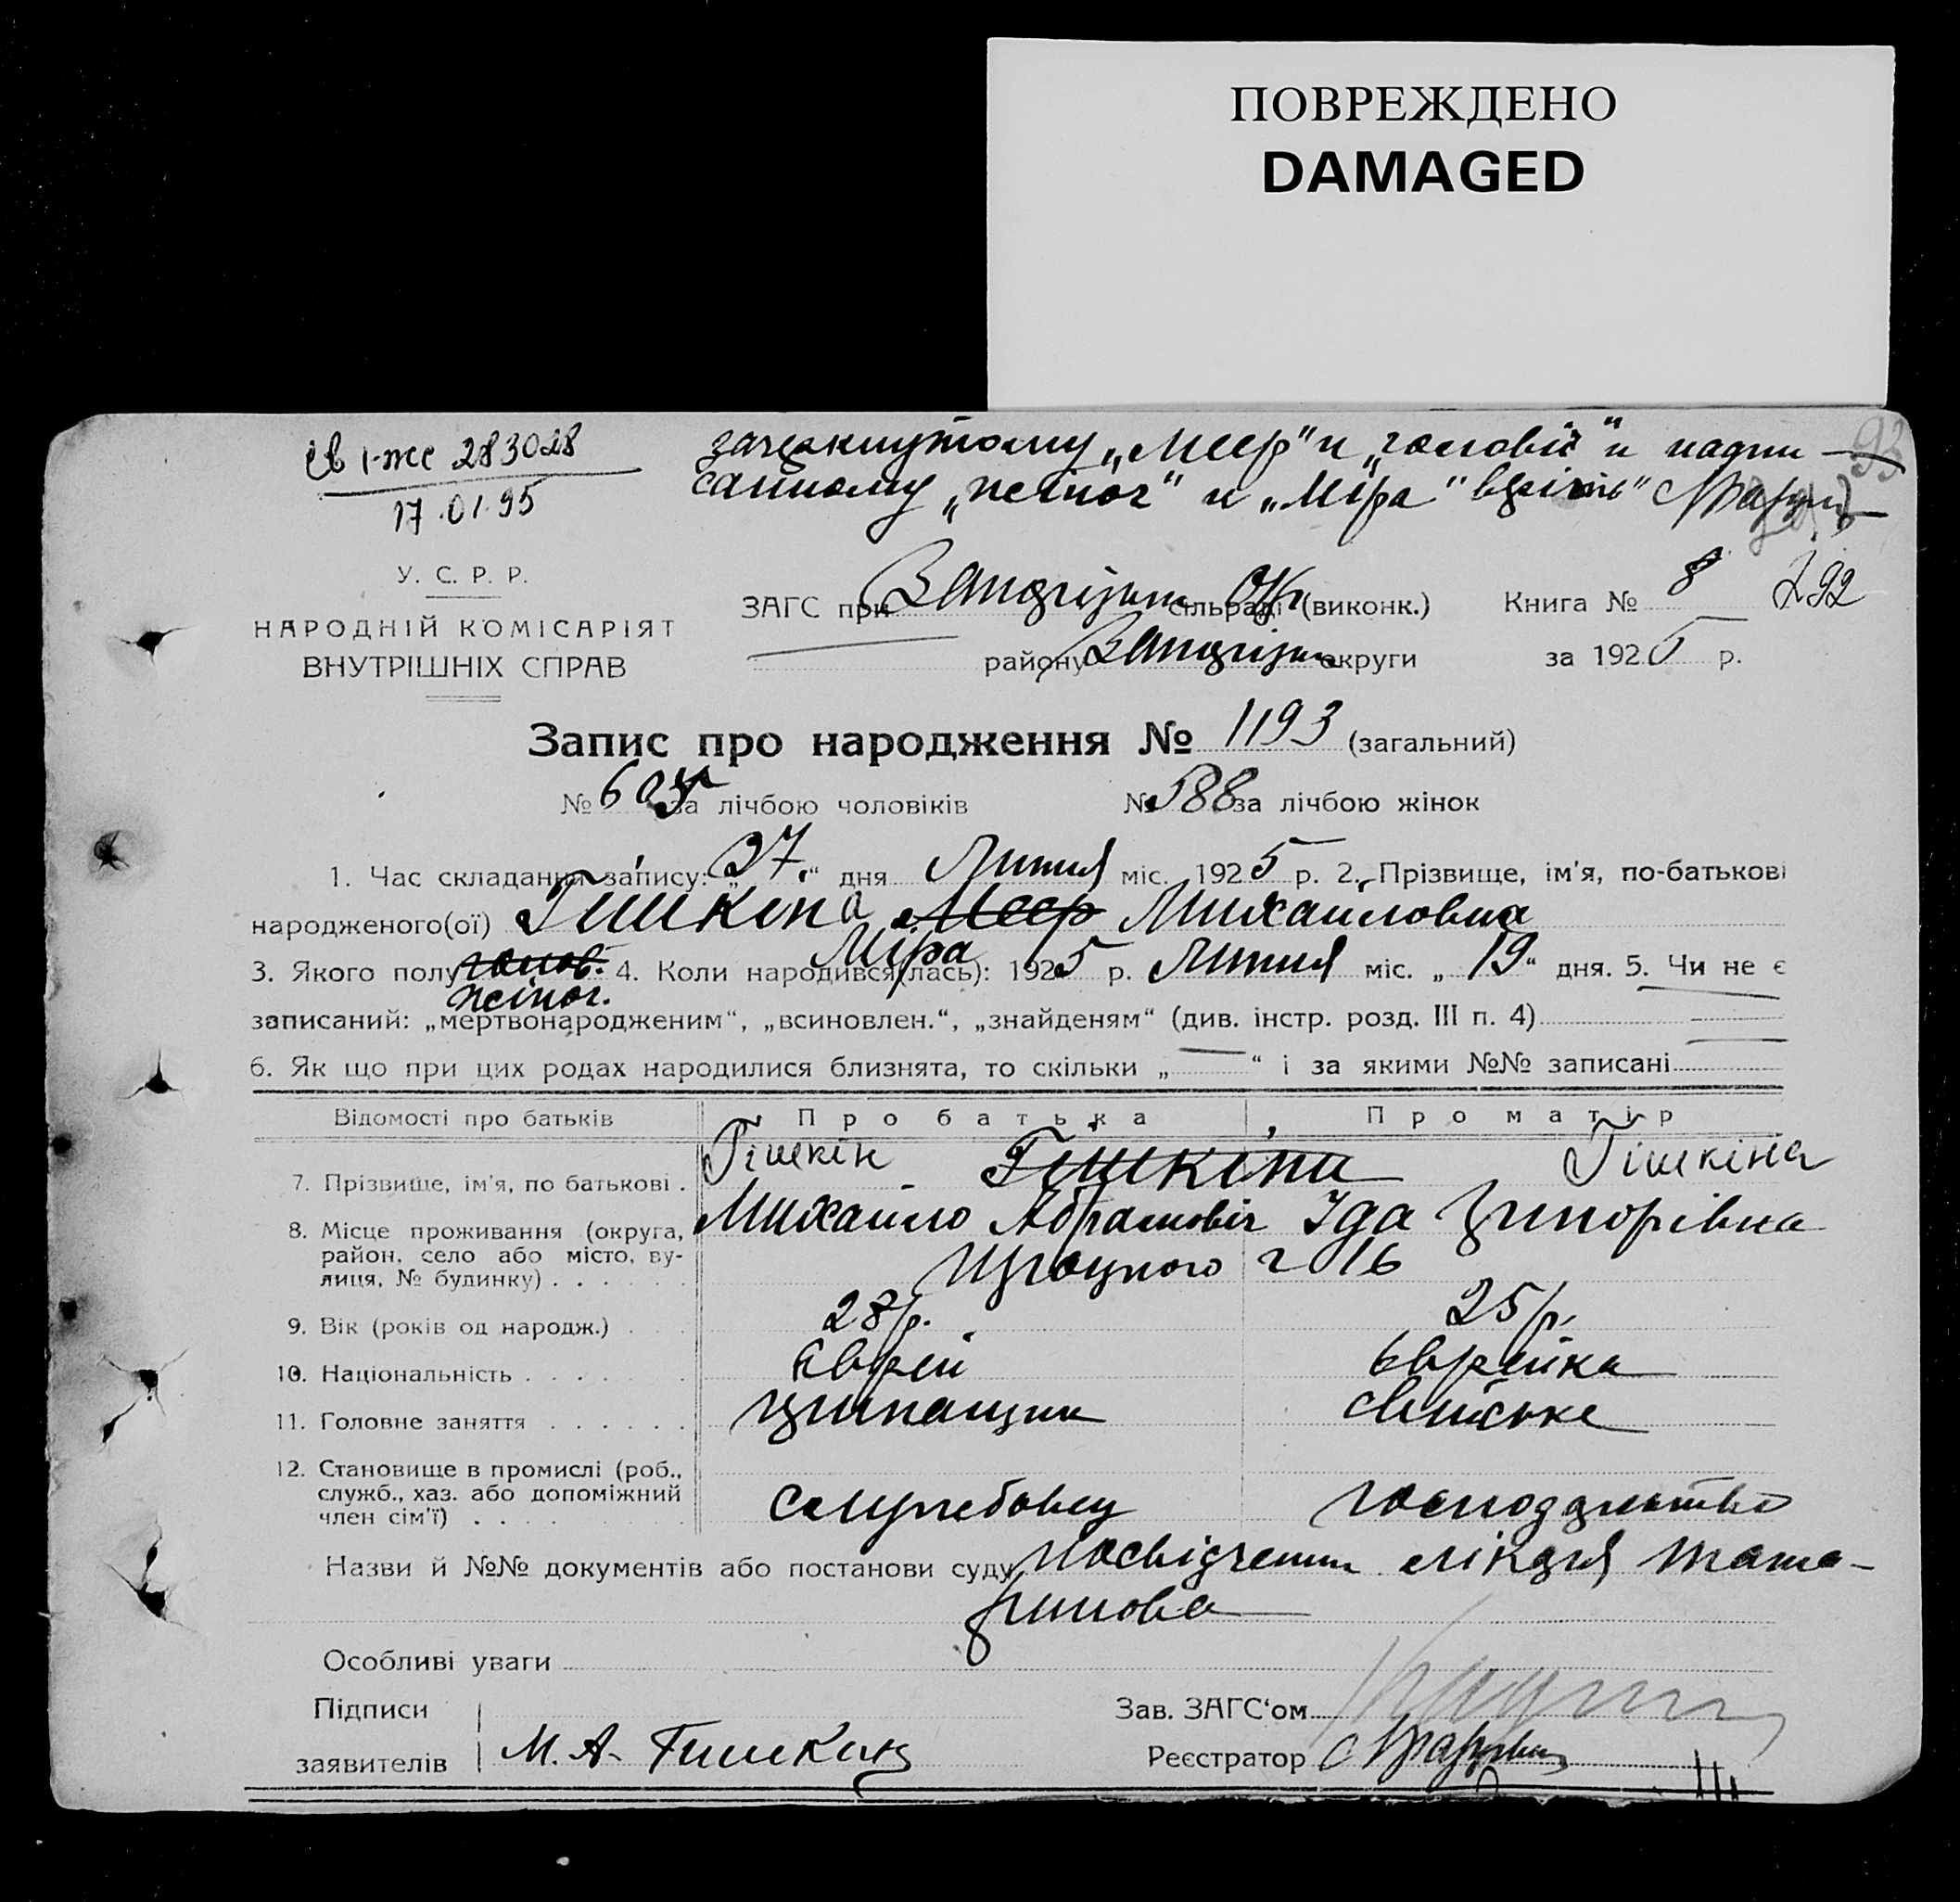 ПОВРЕЖДЕНО
DAMAGED
зачеркнутому „Меер" и „чоловіч" и надпи-
санному „жіноч" и „Міра" вірить
I-ЖС 283028
17.01.95
93
У. С. Р. Р.
НАРОДНІЙ КОМІСАРІЯТ
ВНУТРІШНІХ СПРАВ
ЗАГС при сільраді (виконк.) Книга № 8 292
району округи за 1925 р.
Запис про народження № 1193 (загальний)
№ 605 за лічбою чоловіків № 588 за лічбою жінок
1. Час складання запису: „27" дня Липня міс. 1925 р. 2. Прізвище, ім'я, по-батькові
народженого(ої) Гишкіна Меер Михайловна
Міра
3. Якого полу чолов. 4. Коли народився(лась): 1925 р. Липня міс. „19" дня. 5. Чи не є
жіноч.
записаний: „мертвонародженим", „всиновлен.", „знайденям" (див. інстр. розд. III п. 4)
6. Як що при цих родах народилися близнята, то скільки „—" і за якими №№ записані
Відомості про батьків Про батька Про матір
Гішкін Гишкіни Гішкіна
7. Прізвище, ім'я, по батькові . Михайло Абрамовіч Іда Григорівна
8. Місце проживання (округа, район, село або місто, вулиця, № будинку) . . . . . . Троцького ч 16
9. Вік (років од народж.) . . . 28 р. 25 р.
10. Національність . . . . . . . Єврей Єврейка
11. Головне заняття . . . . . . свійське
12. Становище в промислі (роб., служб., хаз. або допоміжний член сім'ї) . . . . . . службовец господарство
Назви й №№ документів або постанови суду посвідчення лікаря Тата-
ринова
Особливі уваги
Підписи Зав. ЗАГС'ом
заявителів М. А. Гишкин Реєстратор